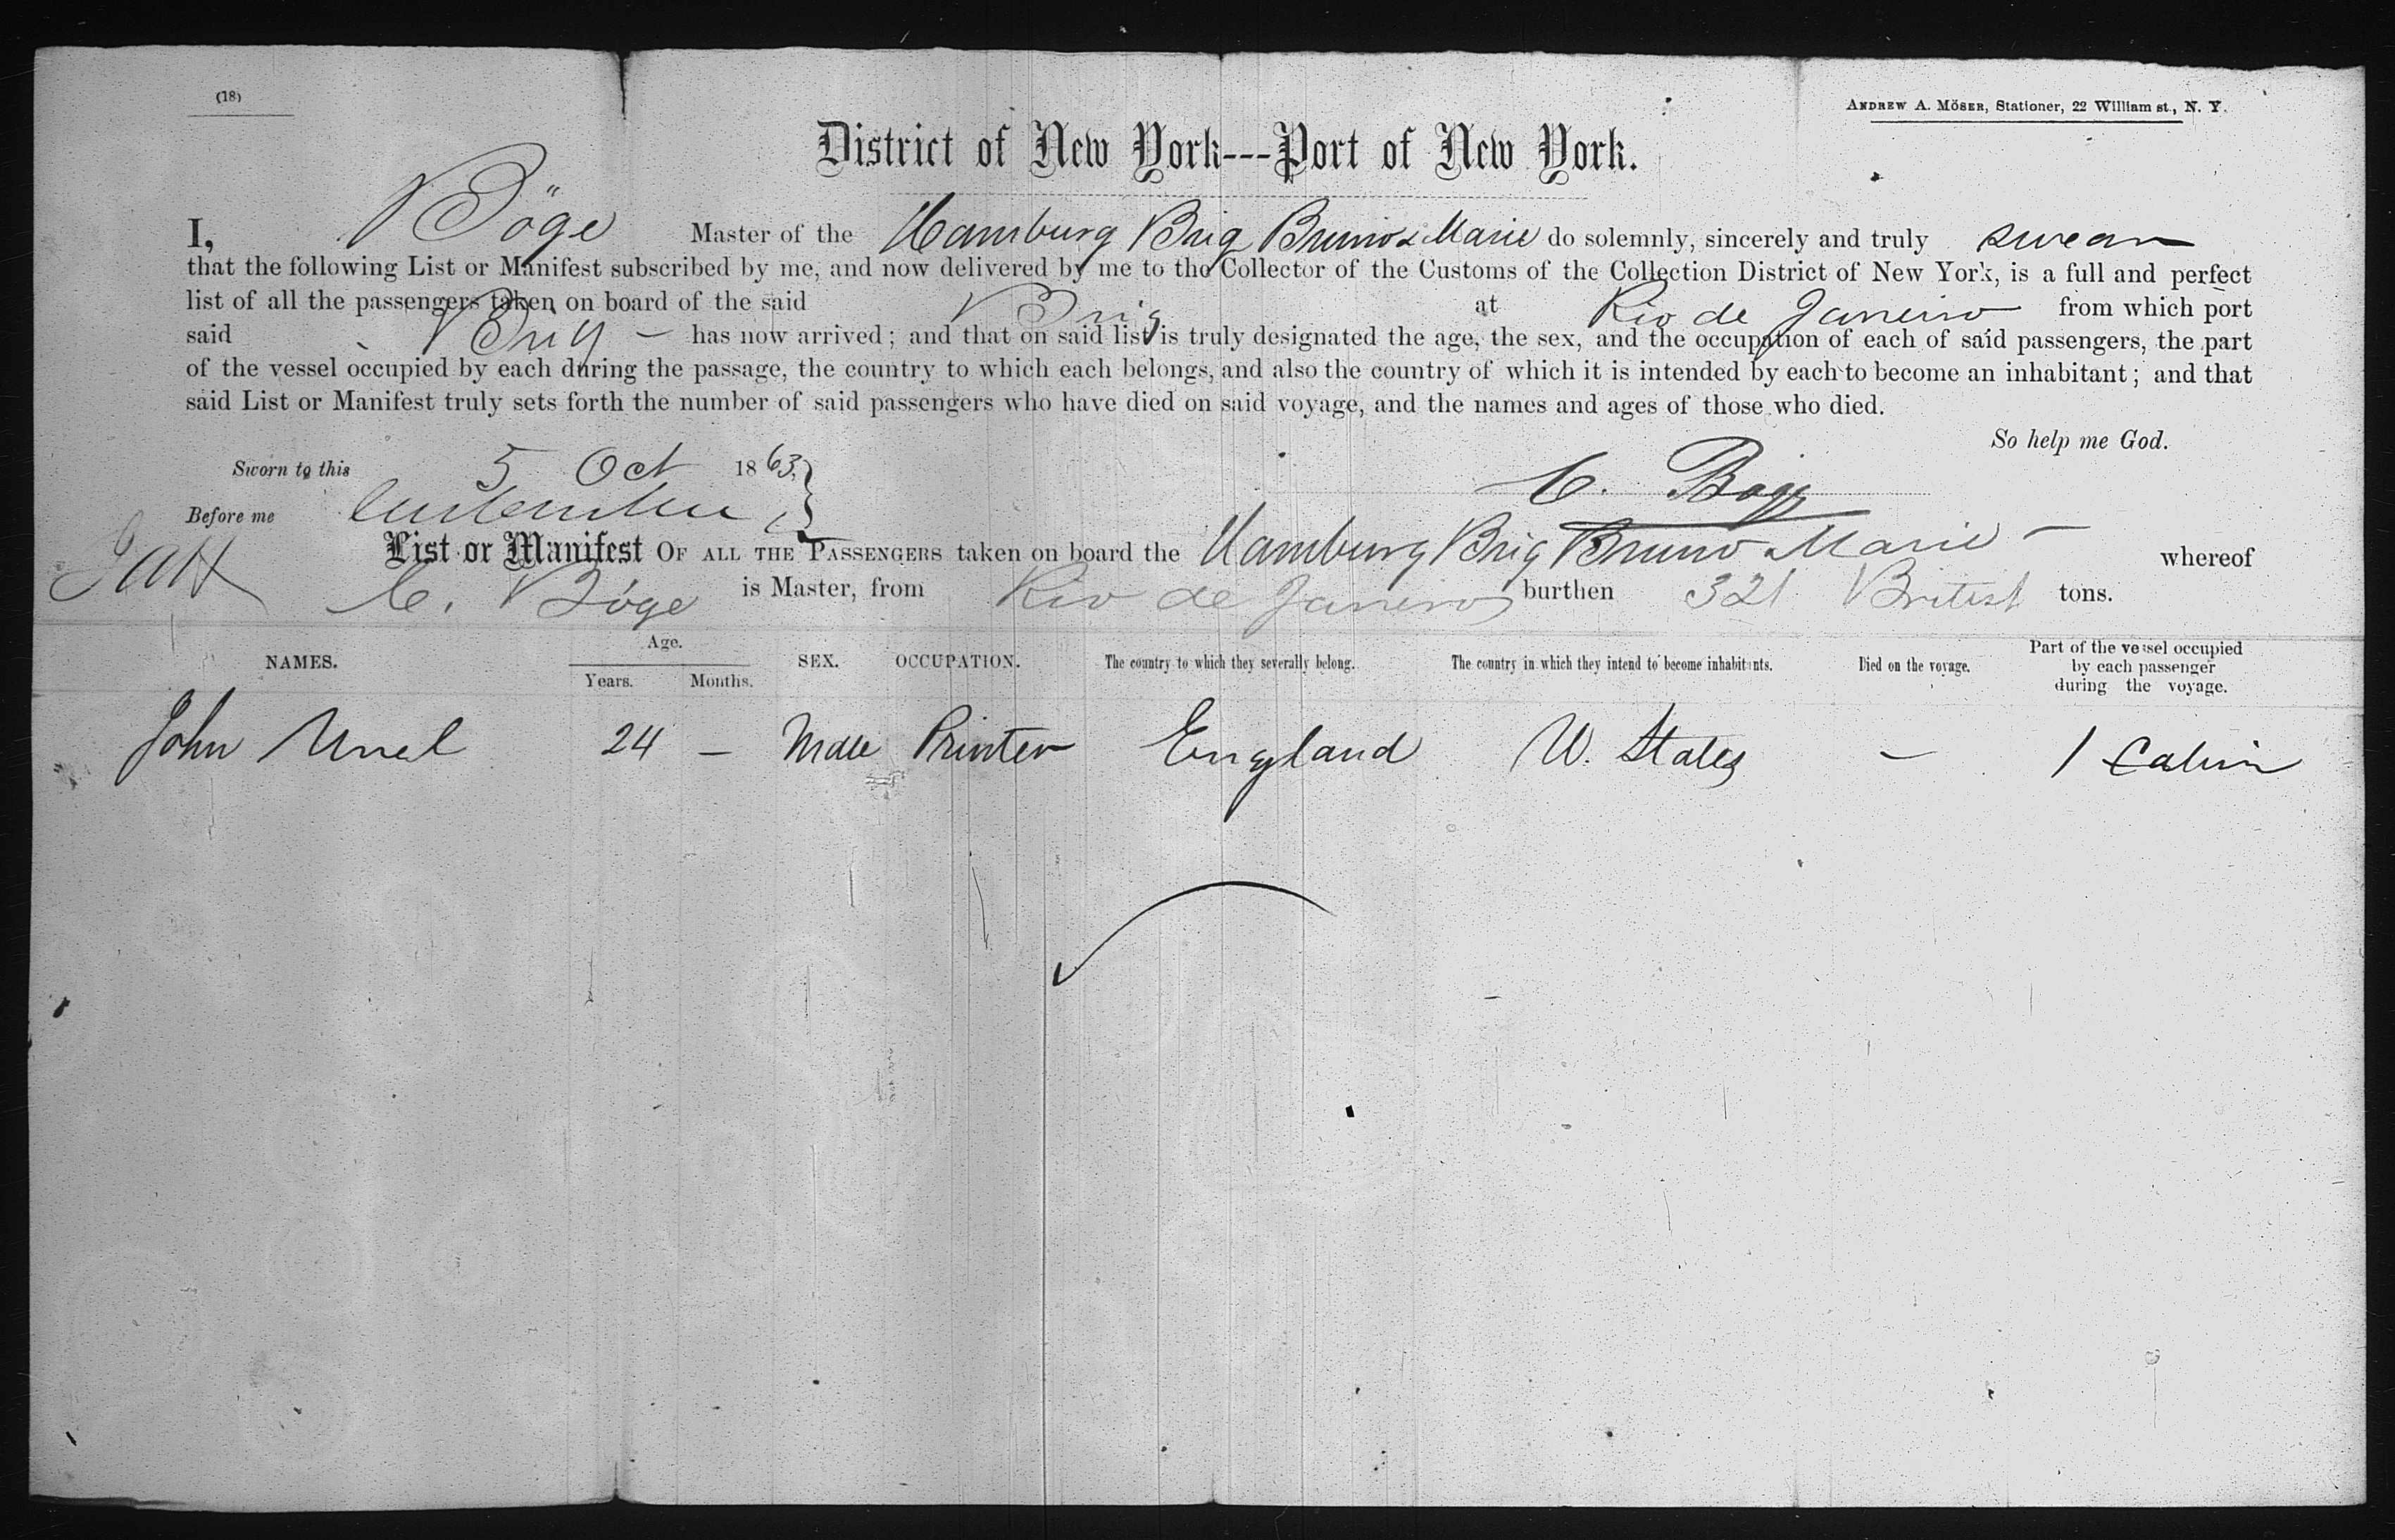 (18)
ANDREW A. MÖSER, Stationer, 22 William st., N. Y.
District of New York---Port of New York.
I, Böge Master of the Hamburg Brig Bruno & Marie do solemnly, sincerely and truly swear
that the following List or Manifest subscribed by me, and now delivered by me to the Collector of the Customs of the Collection District of New York, is a full and perfect
list of all the passengers taken on board of the said Brig at Rio de Janeiro from which port
said Brig — has now arrived; and that on said list is truly designated the age, the sex, and the occupation of each of said passengers, the part
of the vessel occupied by each during the passage, the country to which each belongs, and also the country of which it is intended by each to become an inhabitant; and that
said List or Manifest truly sets forth the number of said passengers who have died on said voyage, and the names and ages of those who died.
So help me God.
Sworn to this 5 Oct 1863.
C. Böge
Before me
List or Manifest OF ALL THE PASSENGERS taken on board the Hamburg Brig Bruno & Marie — whereof
C. Böge is Master, from Rio de Janeiro burthen 321 British tons.
NAMES. Age. Years. Months. SEX. OCCUPATION. The country to which they severally belong. The country in which they intend to become inhabitants. Died on the voyage. Part of the vessel occupied by each passenger during the voyage.
John 24 — Male Printer England U. States — 1 Cabin